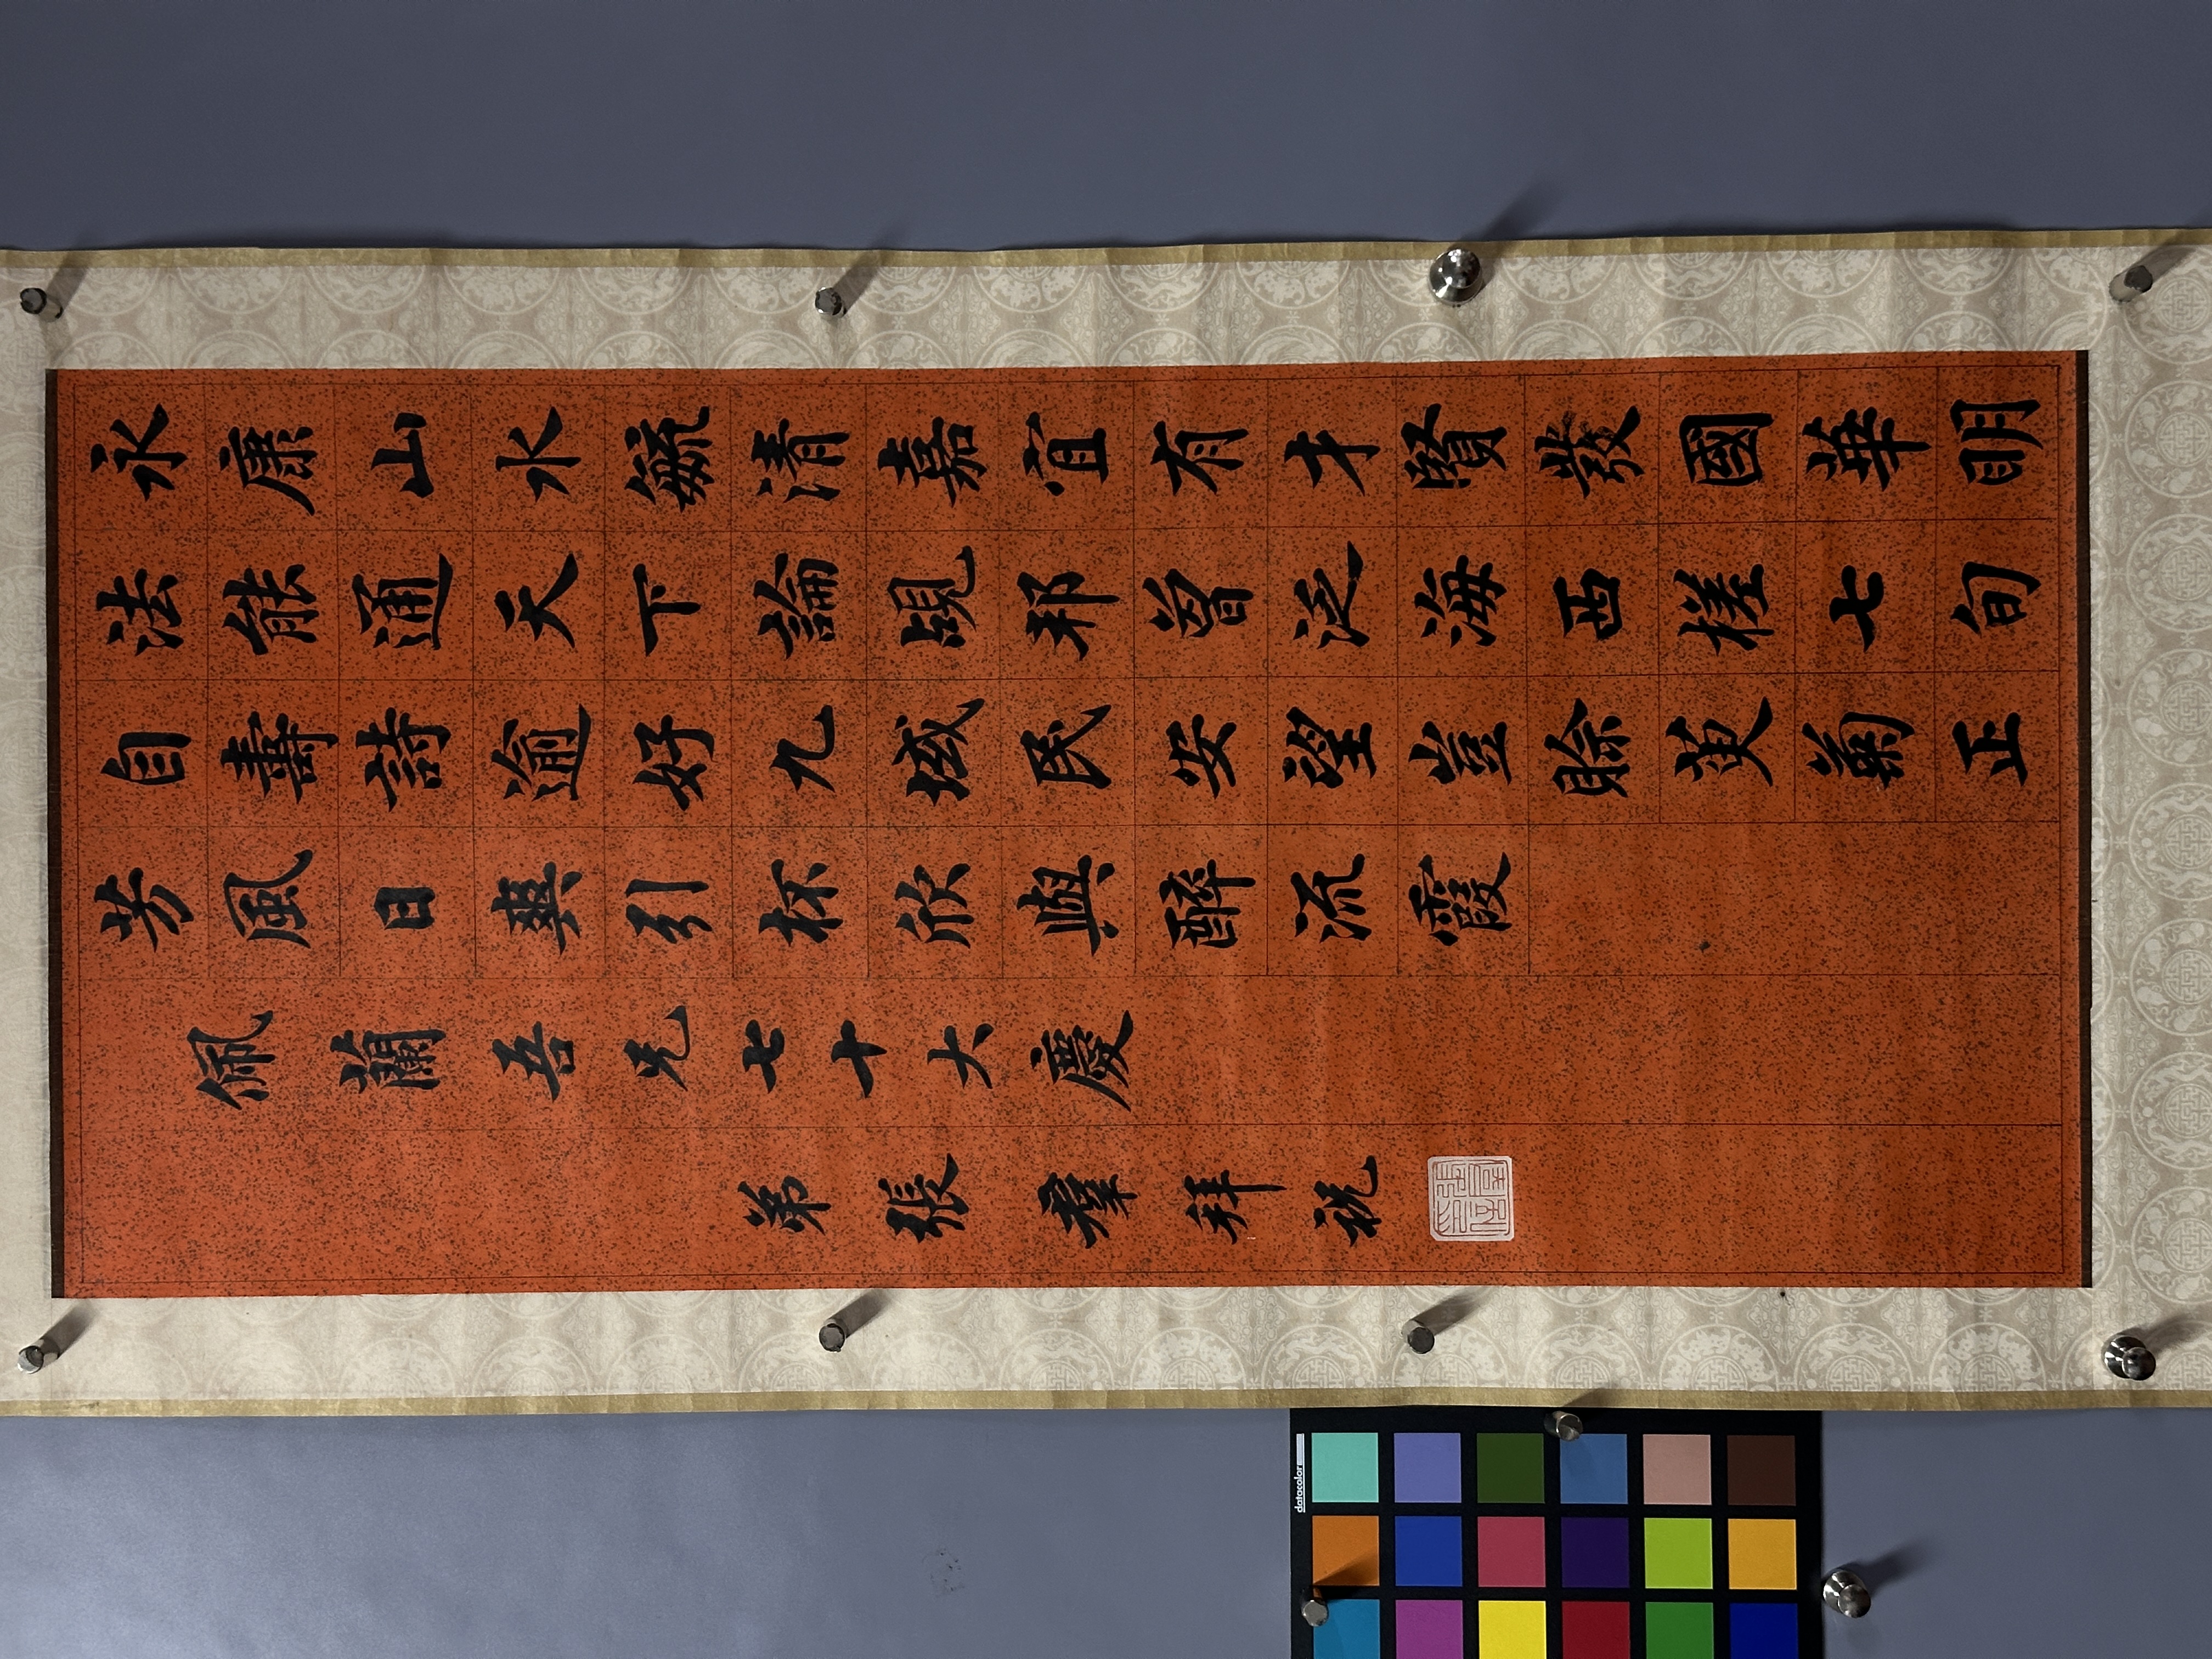 永康山水毓清嘉宜有才賢發國華明
法能通天下論覘邦曾泛海西槎七旬
自壽詩逾好九域民安望豈賒萸菊正
芳風日爽引杯欣與醉流霞
佩蘭吾兄七十大慶
弟張羣拜祝
datacolor